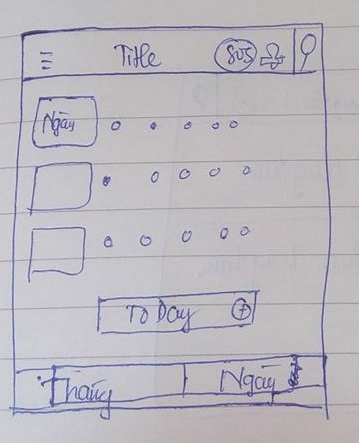 Title 805
Ngày
To Day +
Tháng Ngày